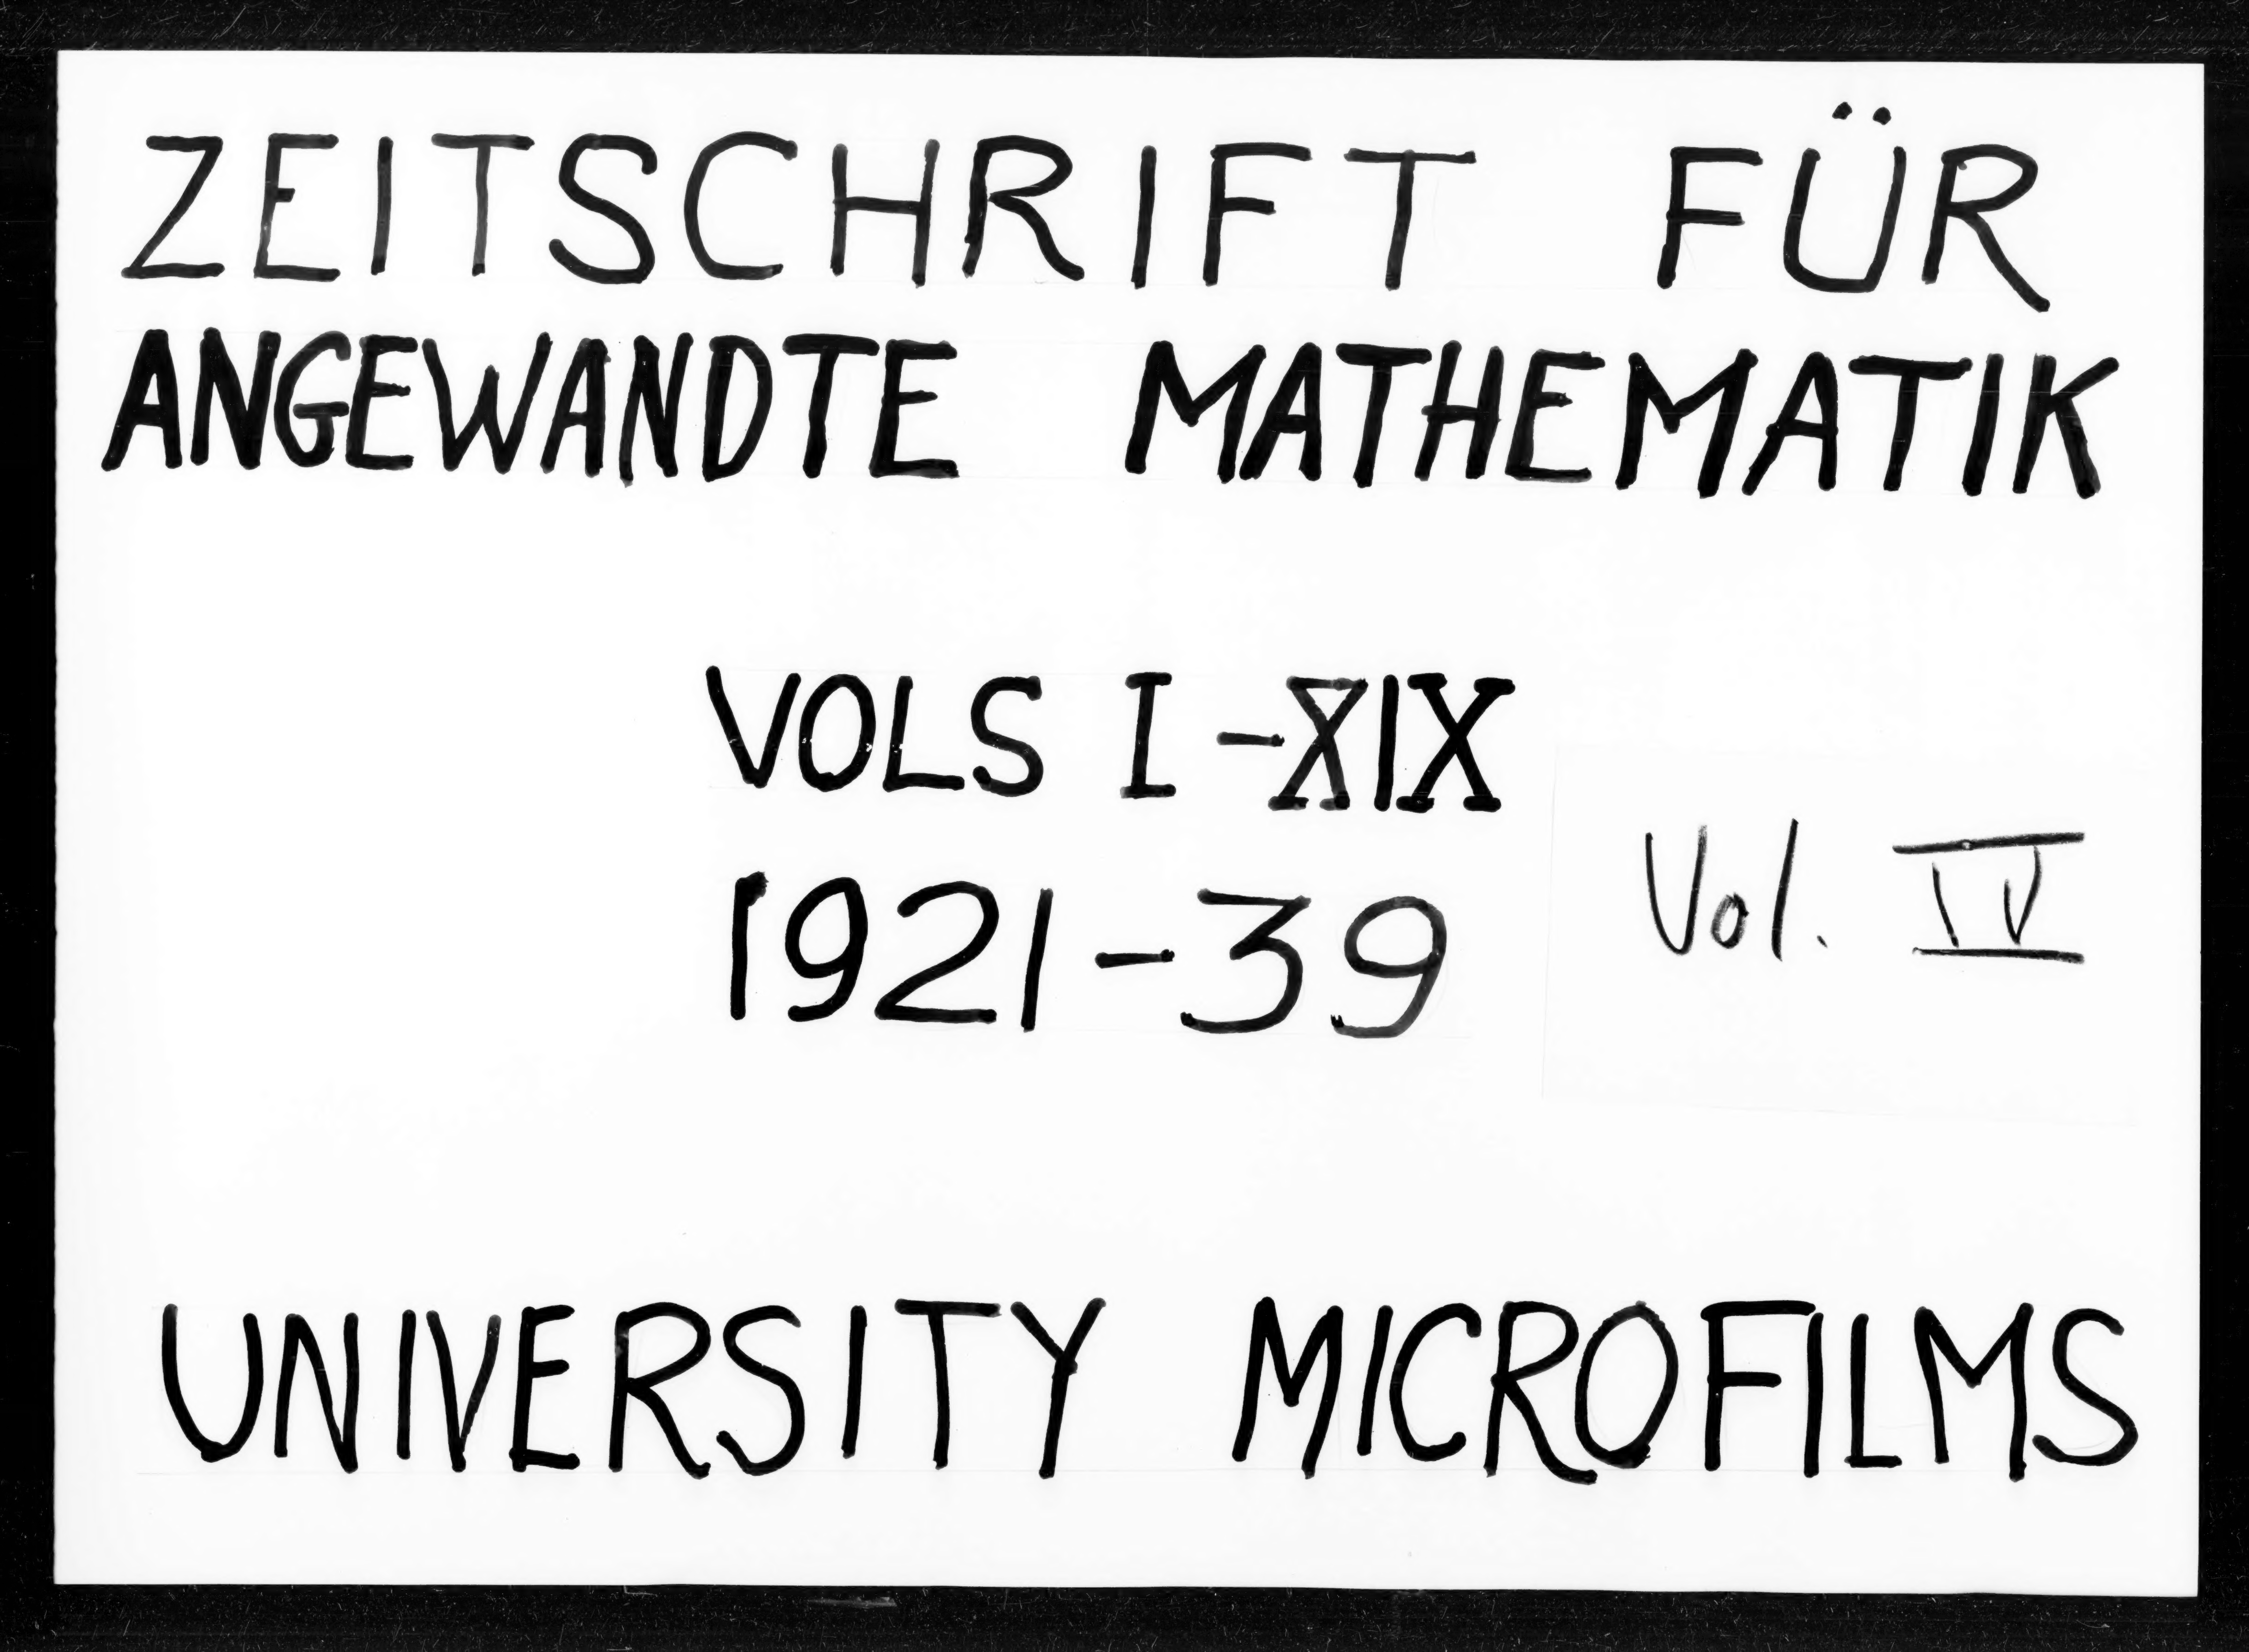 ZEITSCHRIFT FÜR
ANGEWANDTE MATHEMATIK
VOLS I-XIX
1921-39
Vol. IV
UNIVERSITY MICROFILMS